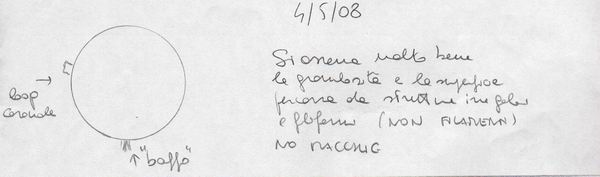 4/5/08
Si osserva molto bene
la granulosità e la superficie
percorsa da strutture irregolari
e (NON FILAMENTI)
NO MACCHIE
loop
coronale
"baffo"